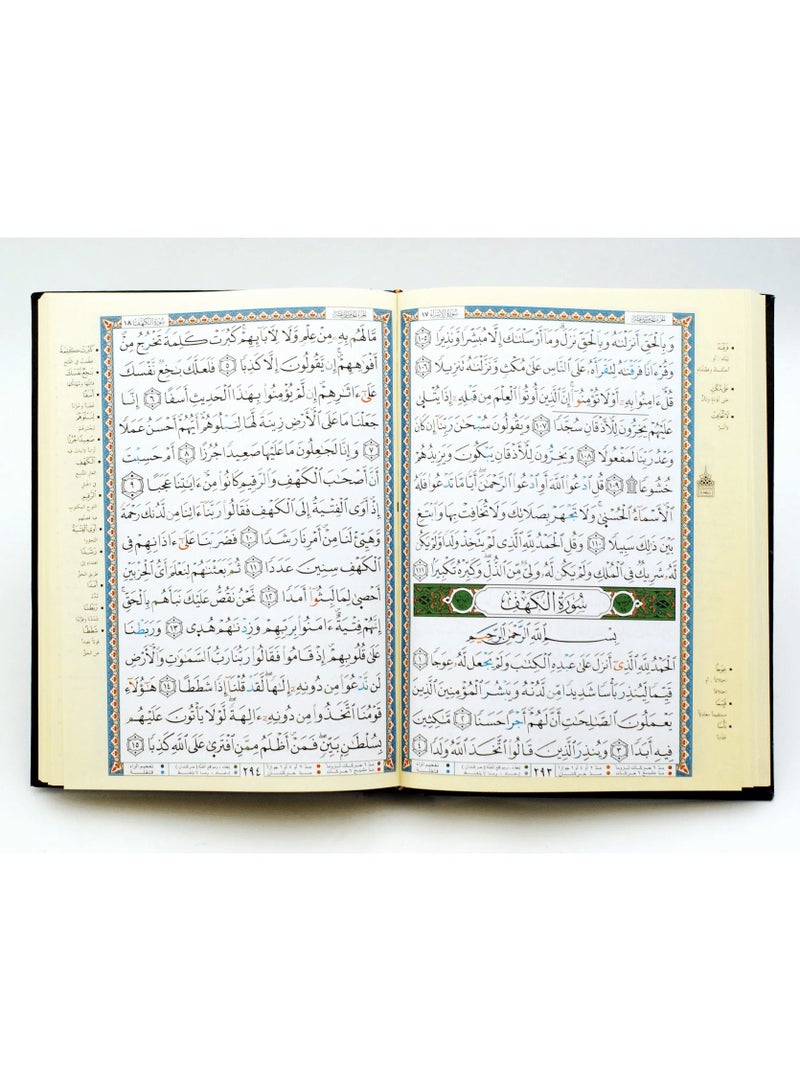 سُورَةُ الإِسْرَاء ١٧
وَبِالْحَقِّ أَنزَلْنَٰهُ وَبِالْحَقِّ نَزَلَ وَمَا أَرْسَلْنَٰكَ إِلَّا مُبَشِّرًا وَنَذِيرًا ١٠٥
وَقُرْءَانًا فَرَقْنَٰهُ لِتَقْرَأَهُ عَلَى النَّاسِ عَلَىٰ مُكْثٍ وَنَزَّلْنَٰهُ تَنزِيلًا ١٠٦
قُلْ ءَامِنُوا بِهِ أَوْ لَا تُؤْمِنُوا إِنَّ الَّذِينَ أُوتُوا الْعِلْمَ مِن قَبْلِهِ إِذَا يُتْلَىٰ
عَلَيْهِمْ يَخِرُّونَ لِلْأَذْقَانِ سُجَّدًا ١٠٧ وَيَقُولُونَ سُبْحَٰنَ رَبِّنَا إِن كَانَ
وَعْدُ رَبِّنَا لَمَفْعُولًا ١٠٨ وَيَخِرُّونَ لِلْأَذْقَانِ يَبْكُونَ وَيَزِيدُهُمْ
خُشُوعًا ۩ ١٠٩ قُلِ ادْعُوا اللَّهَ أَوِ ادْعُوا الرَّحْمَٰنَ أَيًّا مَّا تَدْعُوا فَلَهُ
الْأَسْمَاءُ الْحُسْنَىٰ وَلَا تَجْهَرْ بِصَلَاتِكَ وَلَا تُخَافِتْ بِهَا وَابْتَغِ
بَيْنَ ذَٰلِكَ سَبِيلًا ١١٠ وَقُلِ الْحَمْدُ لِلَّهِ الَّذِي لَمْ يَتَّخِذْ وَلَدًا وَلَمْ يَكُن
لَّهُ شَرِيكٌ فِي الْمُلْكِ وَلَمْ يَكُن لَّهُ وَلِيٌّ مِّنَ الذُّلِّ وَكَبِّرْهُ تَكْبِيرًا ١١١
سُورَةُ الكَهْفِ
بِسْمِ اللَّهِ الرَّحْمَٰنِ الرَّحِيمِ
الْحَمْدُ لِلَّهِ الَّذِي أَنزَلَ عَلَىٰ عَبْدِهِ الْكِتَٰبَ وَلَمْ يَجْعَل لَّهُ عِوَجَا ١
قَيِّمًا لِّيُنذِرَ بَأْسًا شَدِيدًا مِّن لَّدُنْهُ وَيُبَشِّرَ الْمُؤْمِنِينَ الَّذِينَ
يَعْمَلُونَ الصَّٰلِحَٰتِ أَنَّ لَهُمْ أَجْرًا حَسَنًا ٢ مَّٰكِثِينَ
فِيهِ أَبَدًا ٣ وَيُنذِرَ الَّذِينَ قَالُوا اتَّخَذَ اللَّهُ وَلَدًا ٤
٢٩٣
سُورَةُ الكَهْفِ ١٨
مَّا لَهُم بِهِ مِنْ عِلْمٍ وَلَا لِآبَائِهِمْ كَبُرَتْ كَلِمَةً تَخْرُجُ مِنْ
أَفْوَٰهِهِمْ إِن يَقُولُونَ إِلَّا كَذِبًا ٥ فَلَعَلَّكَ بَٰخِعٌ نَّفْسَكَ
عَلَىٰ ءَاثَٰرِهِمْ إِن لَّمْ يُؤْمِنُوا بِهَٰذَا الْحَدِيثِ أَسَفًا ٦ إِنَّا
جَعَلْنَا مَا عَلَى الْأَرْضِ زِينَةً لَّهَا لِنَبْلُوَهُمْ أَيُّهُمْ أَحْسَنُ عَمَلًا
٧ وَإِنَّا لَجَٰعِلُونَ مَا عَلَيْهَا صَعِيدًا جُرُزًا ٨ أَمْ حَسِبْتَ
أَنَّ أَصْحَٰبَ الْكَهْفِ وَالرَّقِيمِ كَانُوا مِنْ ءَايَٰتِنَا عَجَبًا ٩
إِذْ أَوَى الْفِتْيَةُ إِلَى الْكَهْفِ فَقَالُوا رَبَّنَا ءَاتِنَا مِن لَّدُنكَ رَحْمَةً
وَهَيِّئْ لَنَا مِنْ أَمْرِنَا رَشَدًا ١٠ فَضَرَبْنَا عَلَىٰ ءَاذَانِهِمْ فِي
الْكَهْفِ سِنِينَ عَدَدًا ١١ ثُمَّ بَعَثْنَٰهُمْ لِنَعْلَمَ أَيُّ الْحِزْبَيْنِ
أَحْصَىٰ لِمَا لَبِثُوا أَمَدًا ١٢ نَّحْنُ نَقُصُّ عَلَيْكَ نَبَأَهُم بِالْحَقِّ
إِنَّهُمْ فِتْيَةٌ ءَامَنُوا بِرَبِّهِمْ وَزِدْنَٰهُمْ هُدًى ١٣ وَرَبَطْنَا
عَلَىٰ قُلُوبِهِمْ إِذْ قَامُوا فَقَالُوا رَبُّنَا رَبُّ السَّمَٰوَٰتِ وَالْأَرْضِ
لَن نَّدْعُوَا مِن دُونِهِ إِلَٰهًا لَّقَدْ قُلْنَا إِذًا شَطَطًا ١٤ هَٰؤُلَاءِ
قَوْمُنَا اتَّخَذُوا مِن دُونِهِ ءَالِهَةً لَّوْلَا يَأْتُونَ عَلَيْهِم
بِسُلْطَٰنٍ بَيِّنٍ فَمَنْ أَظْلَمُ مِمَّنِ افْتَرَىٰ عَلَى اللَّهِ كَذِبًا ١٥
٢٩٤